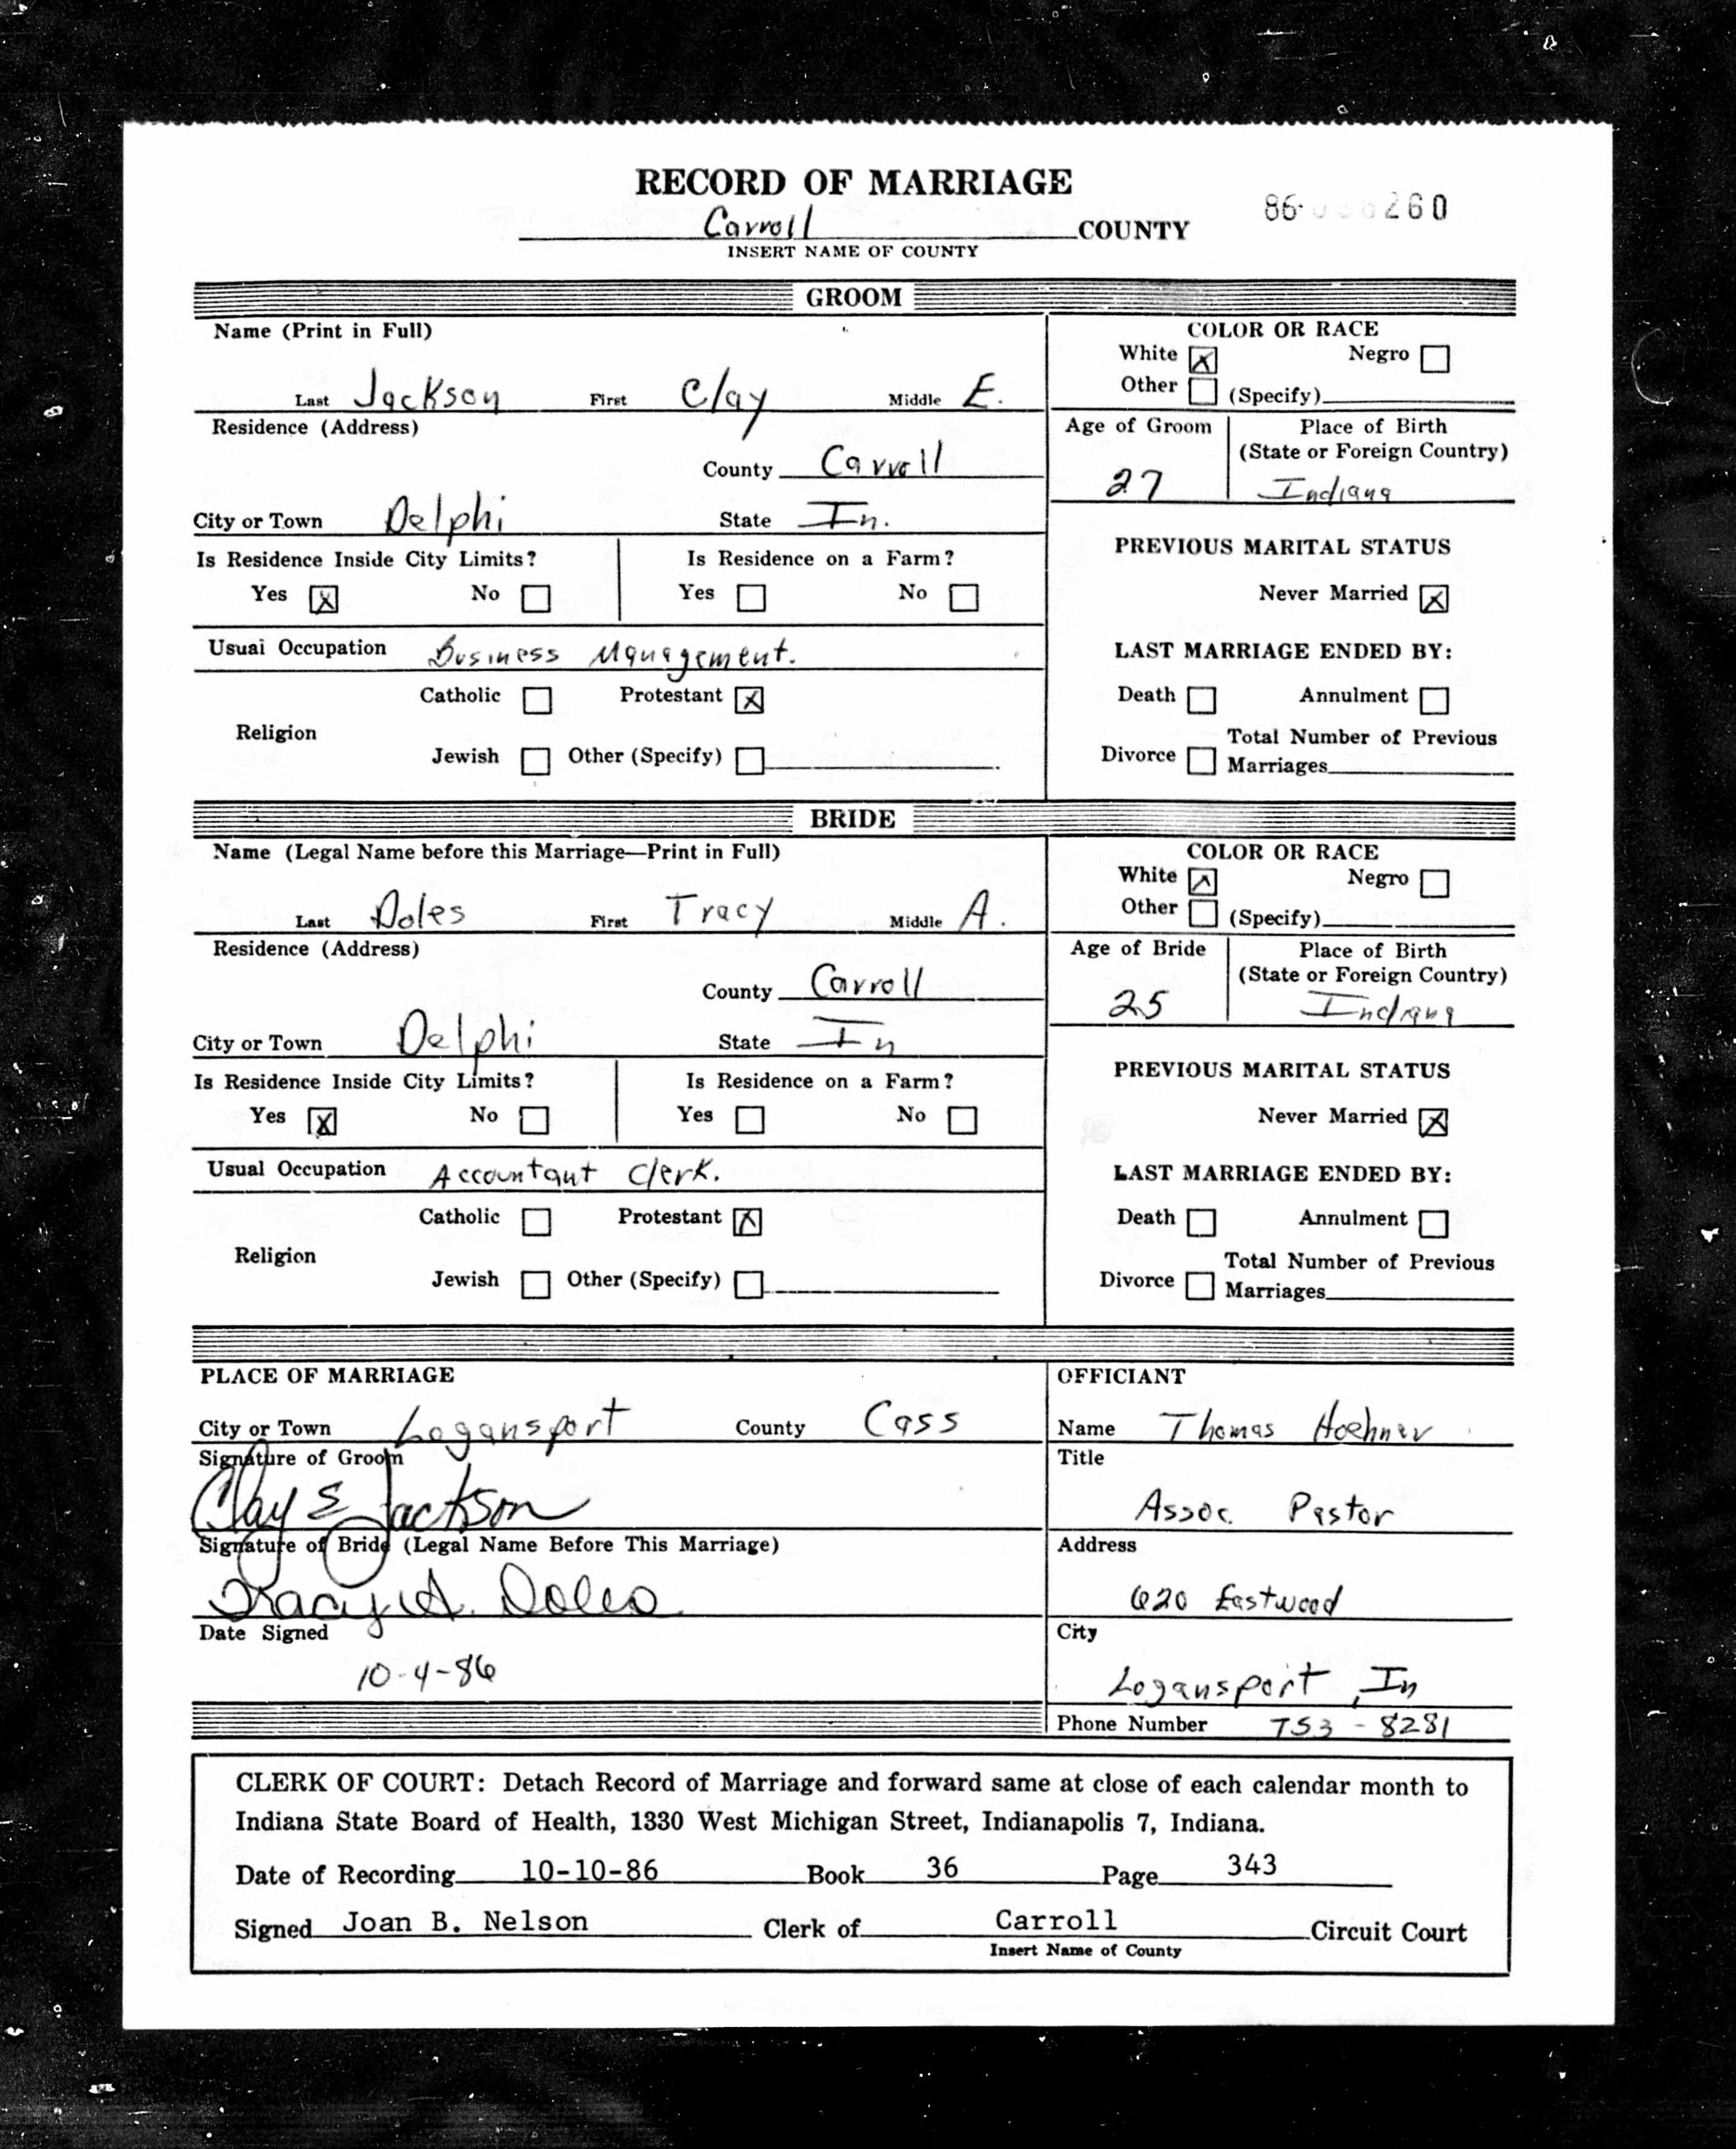 RECORD OF MARRIAGE
Carroll COUNTY 86- 260
INSERT NAME OF COUNTY
GROOM
Name (Print in Full)
Last Jackson First Clay Middle E.
COLOR OR RACE
White [X] Negro [ ]
Other [ ] (Specify)
Residence (Address)
County Carroll
City or Town Delphi State In.
Age of Groom 27
Place of Birth
(State or Foreign Country)
Indiana
Is Residence Inside City Limits?
Yes [X] No [ ]
Is Residence on a Farm?
Yes [ ] No [ ]
PREVIOUS MARITAL STATUS
Never Married [X]
Usual Occupation Business Management.
LAST MARRIAGE ENDED BY:
Death [ ] Annulment [ ]
Divorce [ ] Total Number of Previous
Marriages
Religion
Catholic [ ] Protestant [X]
Jewish [ ] Other (Specify) [ ]
BRIDE
Name (Legal Name before this Marriage—Print in Full)
Last Doles First Tracy Middle A.
COLOR OR RACE
White [X] Negro [ ]
Other [ ] (Specify)
Residence (Address)
County Carroll
City or Town Delphi State In
Age of Bride 25
Place of Birth
(State or Foreign Country)
Indiana
Is Residence Inside City Limits?
Yes [X] No [ ]
Is Residence on a Farm?
Yes [ ] No [ ]
PREVIOUS MARITAL STATUS
Never Married [X]
Usual Occupation Accountant Clerk.
LAST MARRIAGE ENDED BY:
Death [ ] Annulment [ ]
Divorce [ ] Total Number of Previous
Marriages
Religion
Catholic [ ] Protestant [X]
Jewish [ ] Other (Specify) [ ]
PLACE OF MARRIAGE
City or Town Logansport County Cass
Signature of Groom
Clay E Jackson
Signature of Bride (Legal Name Before This Marriage)
Tracy A. Doles
Date Signed
10-4-86
OFFICIANT
Name Thomas Hoehner
Title
Assoc. Pastor
Address
620 Eastwood
City
Logansport, In
Phone Number 753-8281
CLERK OF COURT: Detach Record of Marriage and forward same at close of each calendar month to
Indiana State Board of Health, 1330 West Michigan Street, Indianapolis 7, Indiana.
Date of Recording 10-10-86 Book 36 Page 343
Signed Joan B. Nelson Clerk of Carroll Circuit Court
Insert Name of County